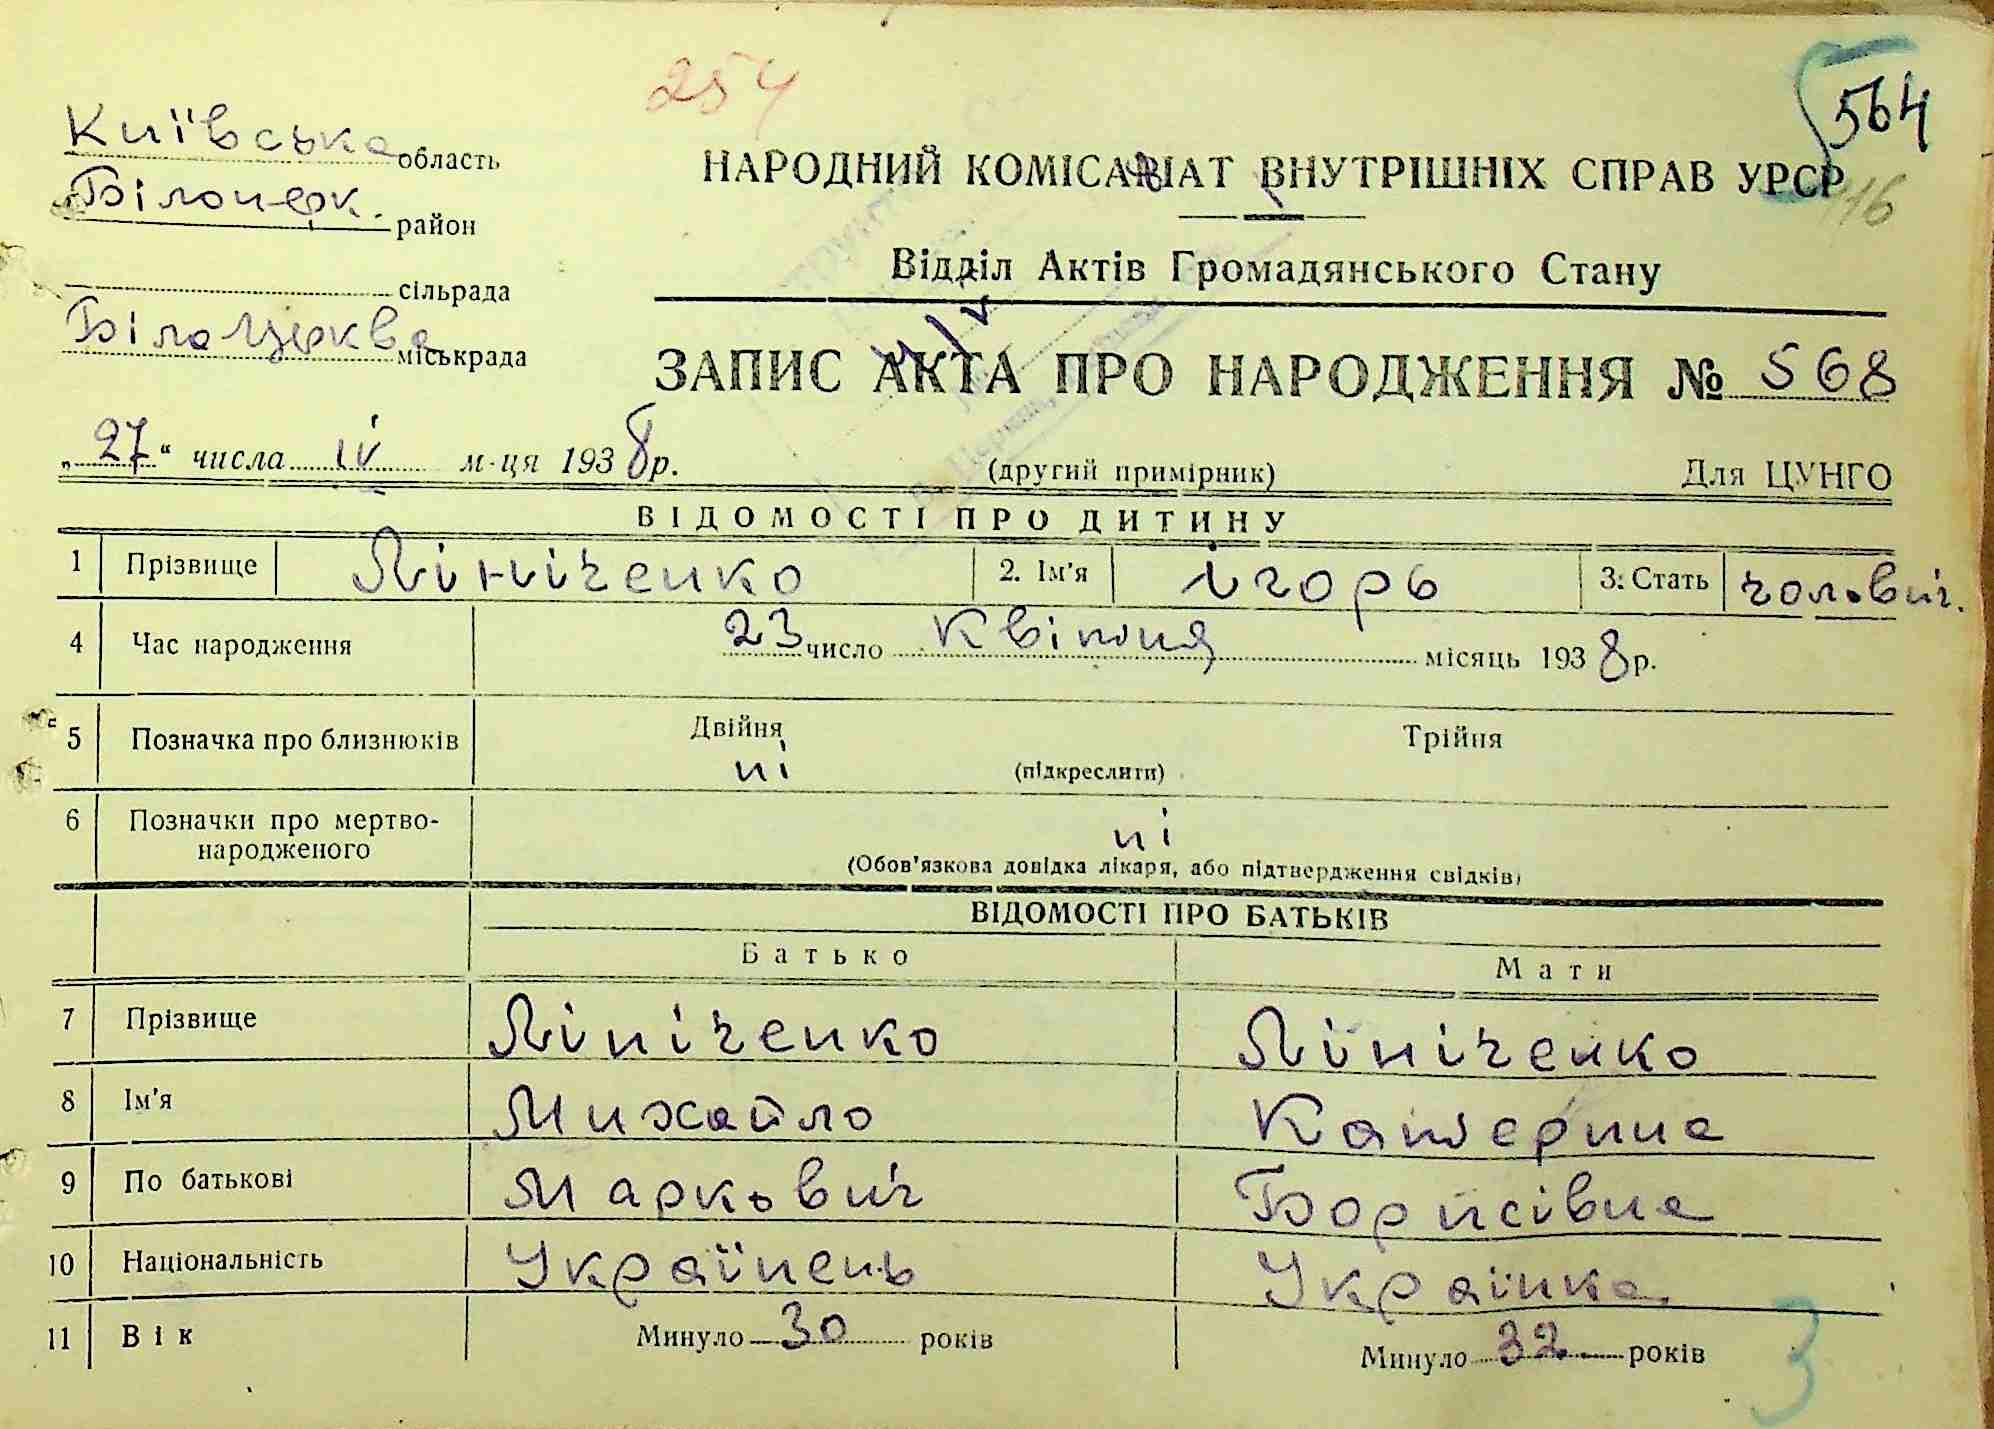 254
564
116
Київська область
Білоцерк. район
сільрада
Біла Церква міськрада
НАРОДНИЙ КОМІСАРІАТ ВНУТРІШНІХ СПРАВ УРСР
Відділ Актів Громадянського Стану
ЗАПИС АКТА ПРО НАРОДЖЕННЯ № 568
„27“ числа IV м-ця 1938р. (другий примірник) Для ЦУНГО
ВІДОМОСТІ ПРО ДИТИНУ
1 Прізвище Лініченко 2. Ім'я Ігорь 3. Стать чоловіч.
4 Час народження 23 число Квітня місяць 1938р.
5 Позначка про близнюків Двійня Трійня
ні (підкреслити)
6 Позначки про мертво-
народженого ні
(Обов'язкова довідка лікаря, або підтвердження свідків)
ВІДОМОСТІ ПРО БАТЬКІВ
Батько Мати
7 Прізвище Лініченко Лініченко
8 Ім'я Михайло Катерина
9 По батькові Маркович Борисівна
10 Національність Українець Українка
11 Вік Минуло 30 років Минуло 32 років
3